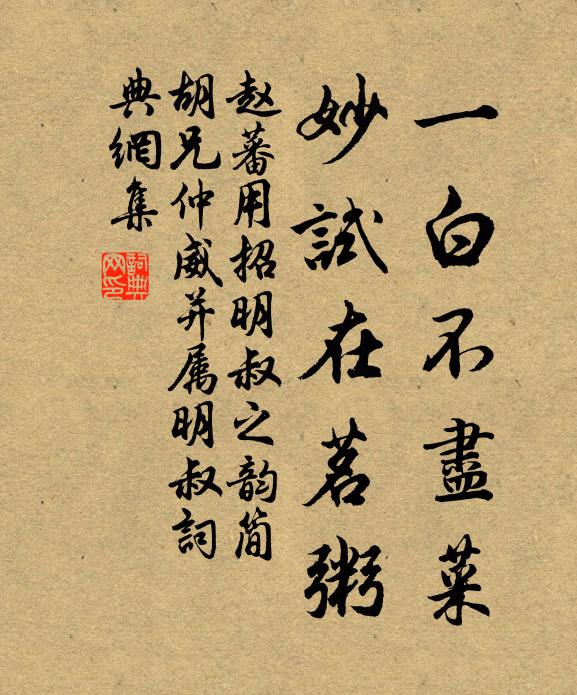 一白不盡菜
妙試在茗粥
赵蕃用招明叔之韵简
胡兄仲威并属明叔詞
典網集
詞典
网印